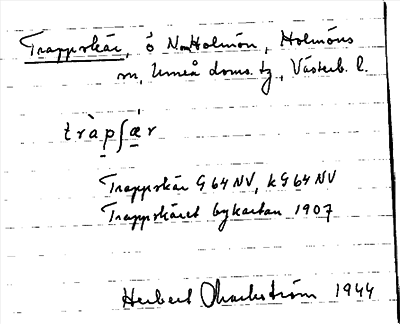 Trappskär, ö N om Holmön, Holmöns
sn, Umeå doms. tg, Västerb. l.
tràpʃæ̀r
Trappskär G 64 NV, kG 64 NV
Trappskäret bykartan 1907
Herbert 1944